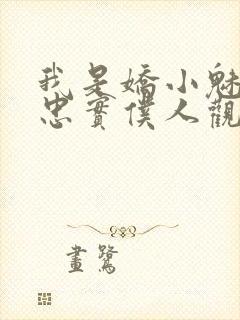 我是嬌小魅
忠實僕人觀
畫鷺